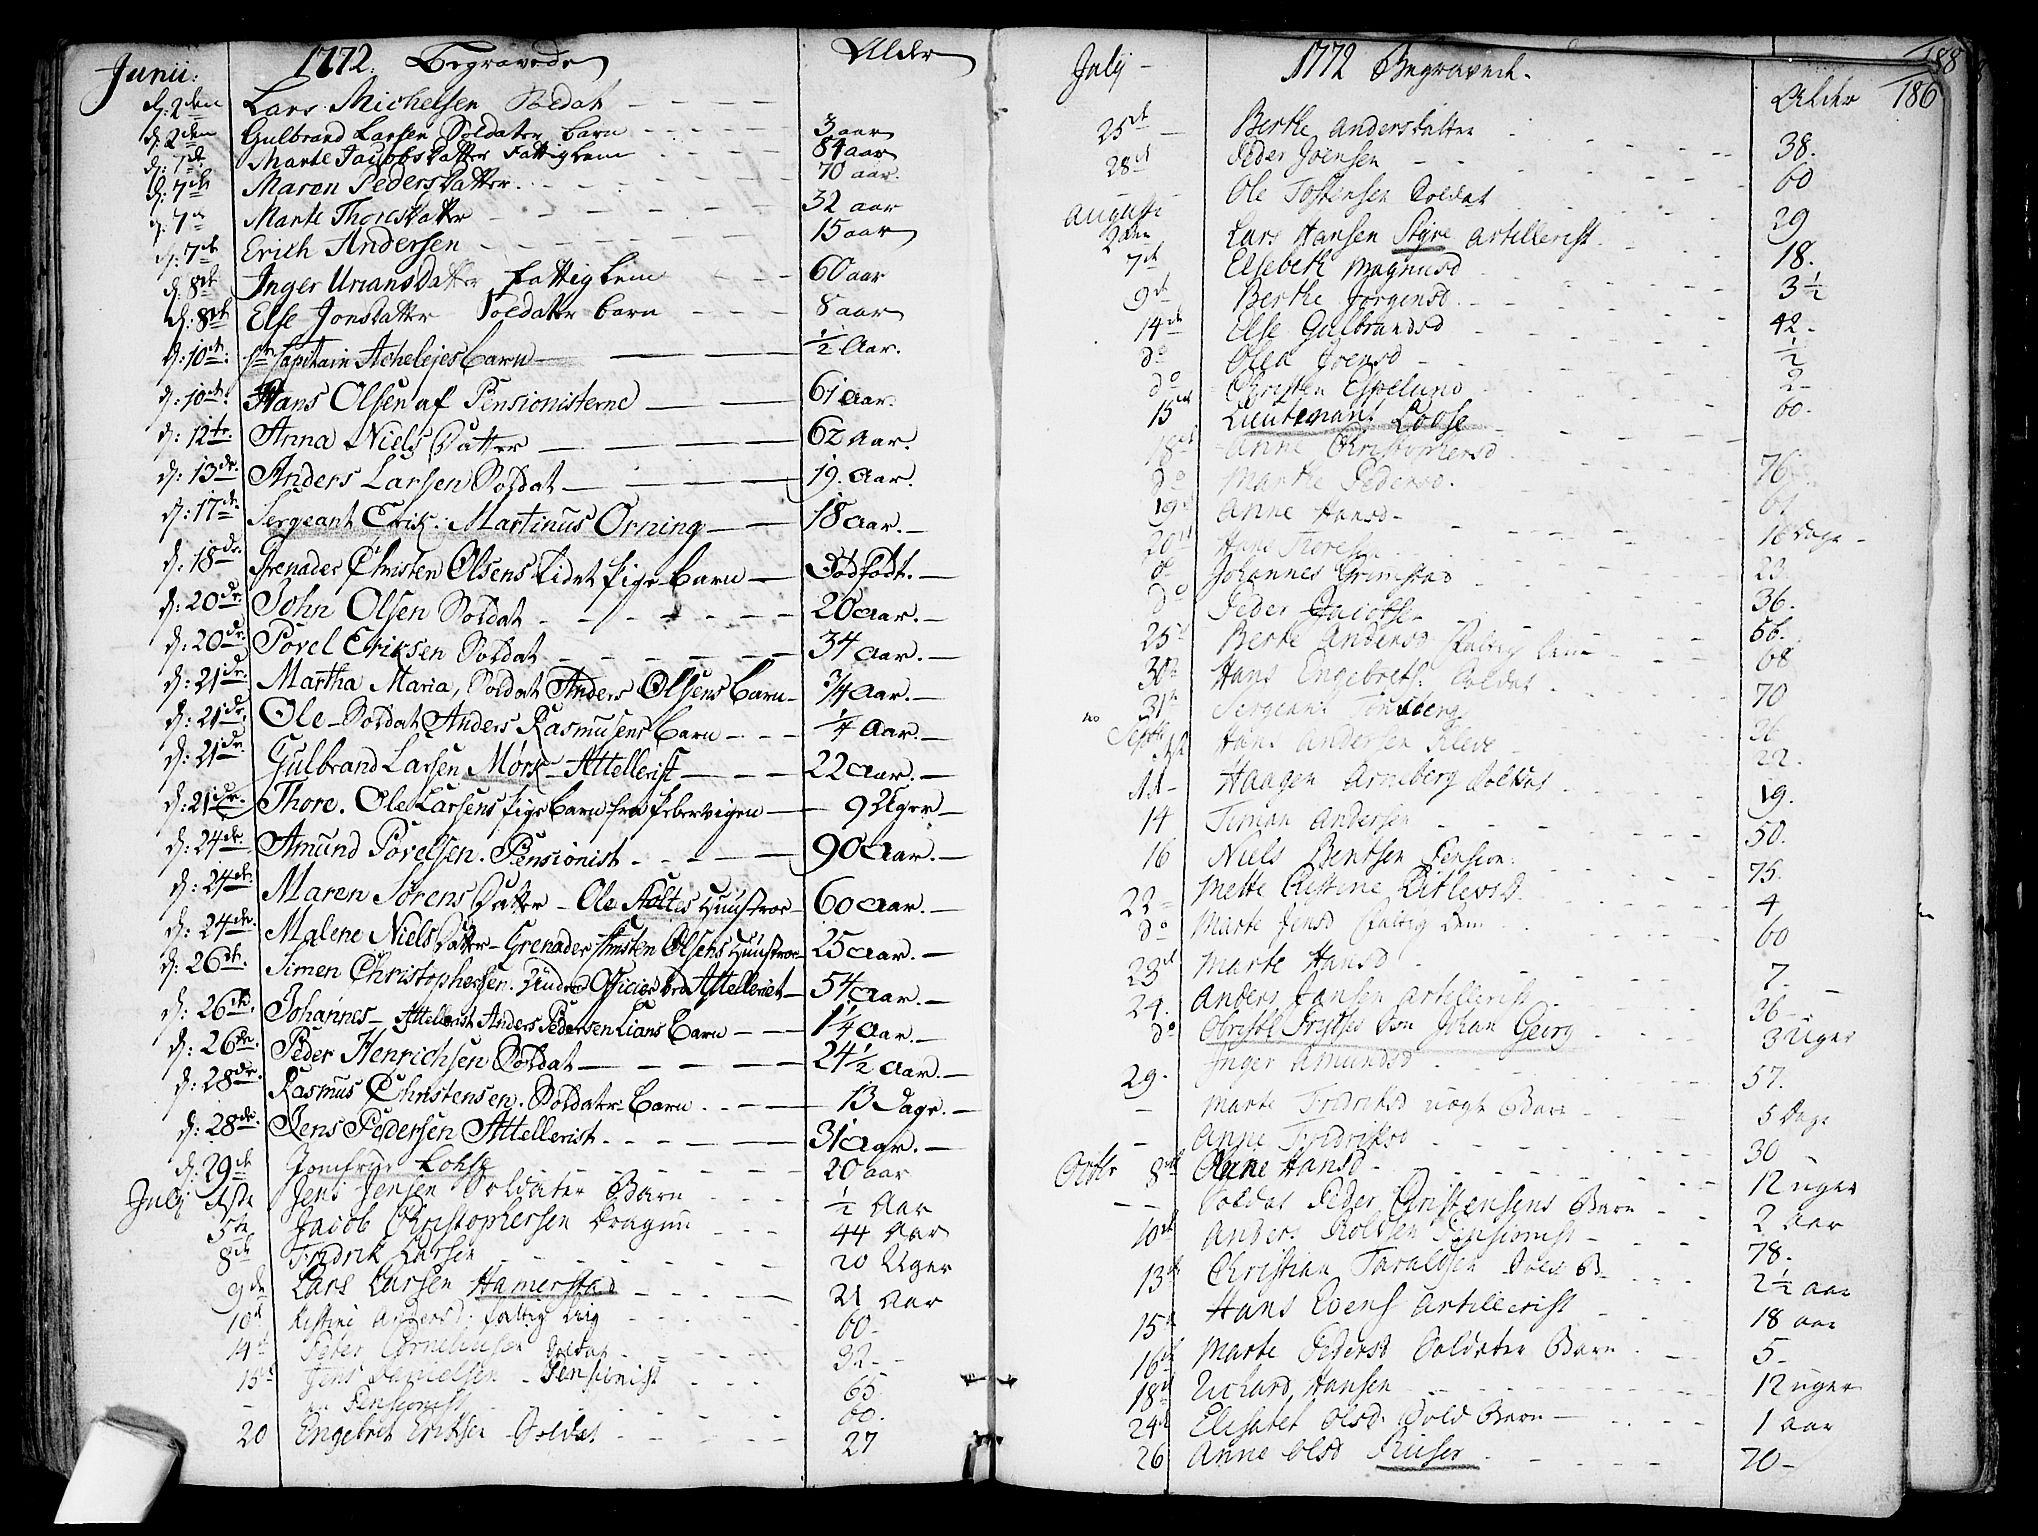 Junii: 1772. Begravede Alder
d: 2den Lars Michelsen Soldat
d: 2den Gulbrand Larsen Soldater barn 3 aar
d: 7de Marte Jacobsdatter Fattig lem 84 aar
d: 7de Maren Pedersdatter 70 aar.
d: 7de Marte Thoresdatter 32 aar
d: 7de Erich Andersen 15 aar
d: 8de Inger Uriansdatter fattig lem 60 aar
d: 8de Else Jonsdatter Soldater barn 8 aar
d: 10de: Hr Capitain Achelejes barn ½ Aar.
d: 10de: Hans Olsen af Pensionisterne 61 aar.
d: 12te. Anna Niels Datter 62 Aar.
d: 13de. Anders Larsen Soldat 19. Aar.
d: 17de. Sergeant Erik: Martinus Orning 18 Aar.
d: 18de. Grenader Christen Olsens lidet pige barn Dödfödt.
d: 20de. John Olsen Soldat 20 Aar.
d: 20de. Povel Eriksen Soldat 34 Aar.
d: 21de. Martha Maria, Soldat Anders Olsens Barn ¾ Aar.
d: 21de. Ole Soldat Anders Rasmusens Barn ¼ Aar.
d: 21de. Gulbrand Larsen Mørk Attellerist 22 Aar.
d: 21de. Thore. Ole Larsens pige barn fra Pebervigen 9 Uger
d: 24de. Amund Povelsen. Pensionist 90 Aar.
d: 24de. Maren Sörens Datter Ole Holtes Huustroe 60 Aar.
d: 24de. Malene Niels Datter Grenader Christen Olsens Huustroe 25 Aar.
d: 26de. Simen Christophersen. Under Officier ved Attelleriet 54 Aar.
d: 26de. Johannes Attellerist Anders Pedersen Lians Barn 1¼ Aar.
d: 26de. Peder Henrichsen Soldat 24½ Aar.
d: 28de. Rasmus Christensen. Soldater Barn 13 Dage.
d: 28de. Jens Pedersen Attellerist 31 Aar.
d: 29de Jomfrue Lohse 20 aar
July 1ste Jens Jensen Soldater Barn ½ Aar
5te Jacob Christophersen Dragun 44 Aar
8de Fridrik Larsen 20 Uger
9de Lars Larsen Hamerstad 21 Aar
10de Kistine Andersd: fattig 60
14de Peter Cornelinsen Soldat 32
15de Jens Danielsen Pensionist 65
- en Pensionist 60.
20 Engebret Eriksen Soldat 27
July 1772 Begravede. Alder 188 186
25de Berthe Andersdatter 38.
28de Peder Joensen 60
Ole Tostensen Soldat 29
Augusti 2den Lars Hansen Styre Artillerist 18.
7de Elsebeth Magnusd 3½
9de Berthe Jorgensd. 42
14de Else Gulbrandsd ½
do Olea Joensd 2
do Christen Espelund 60.
15de Lieutenant Loose
18de Anne Christophersd 76
do Marthe Pedersd. 61
19de Anne Hansd 16 Dage
20de Hans Thoresen 23
do Johannes Grimstad 36.
do Peder Jacobse 66.
25de Berte Andersd Fattig lem 68
30te Hans Engebrets: Soldat 70
31te Sergeant Tonsberg 36
Septb Hans Andersen Kleve 22.
11 Haagen Armberg Soldat 19.
14 Simon Andersen 50.
16 Niels Bentsen Pension: 75.
22 Mette Cristine Ditlevsd 4
do Marte Jensd Fattig Lem 60
23de Marte Hansd 7.
24. Anders Jansen Artillerist 36
do Obristl Frytses Søn Johan Georg 3 Uger
29. Inger Amundsd 57.
- Marte Fridriksd uægte Barn 5 Dage
- Anne Fridriksd 30
Octbr 8de Anne Hansd 12 uger
- Soldat Peder Christensens Barn 2 aar
10de Anders Rolfsen Pensionist 78.
13de Christian Taraldsen Sold B. 2½ aar
15de Hans Evens Artillerist 18 aar
16de Marte Pedersd Soldater Barn 5
18de Richard Hansen 12 uger
24de Elisabet Olsd. Sold Barn 1 aar
26 Anne Olsd Riiser 70